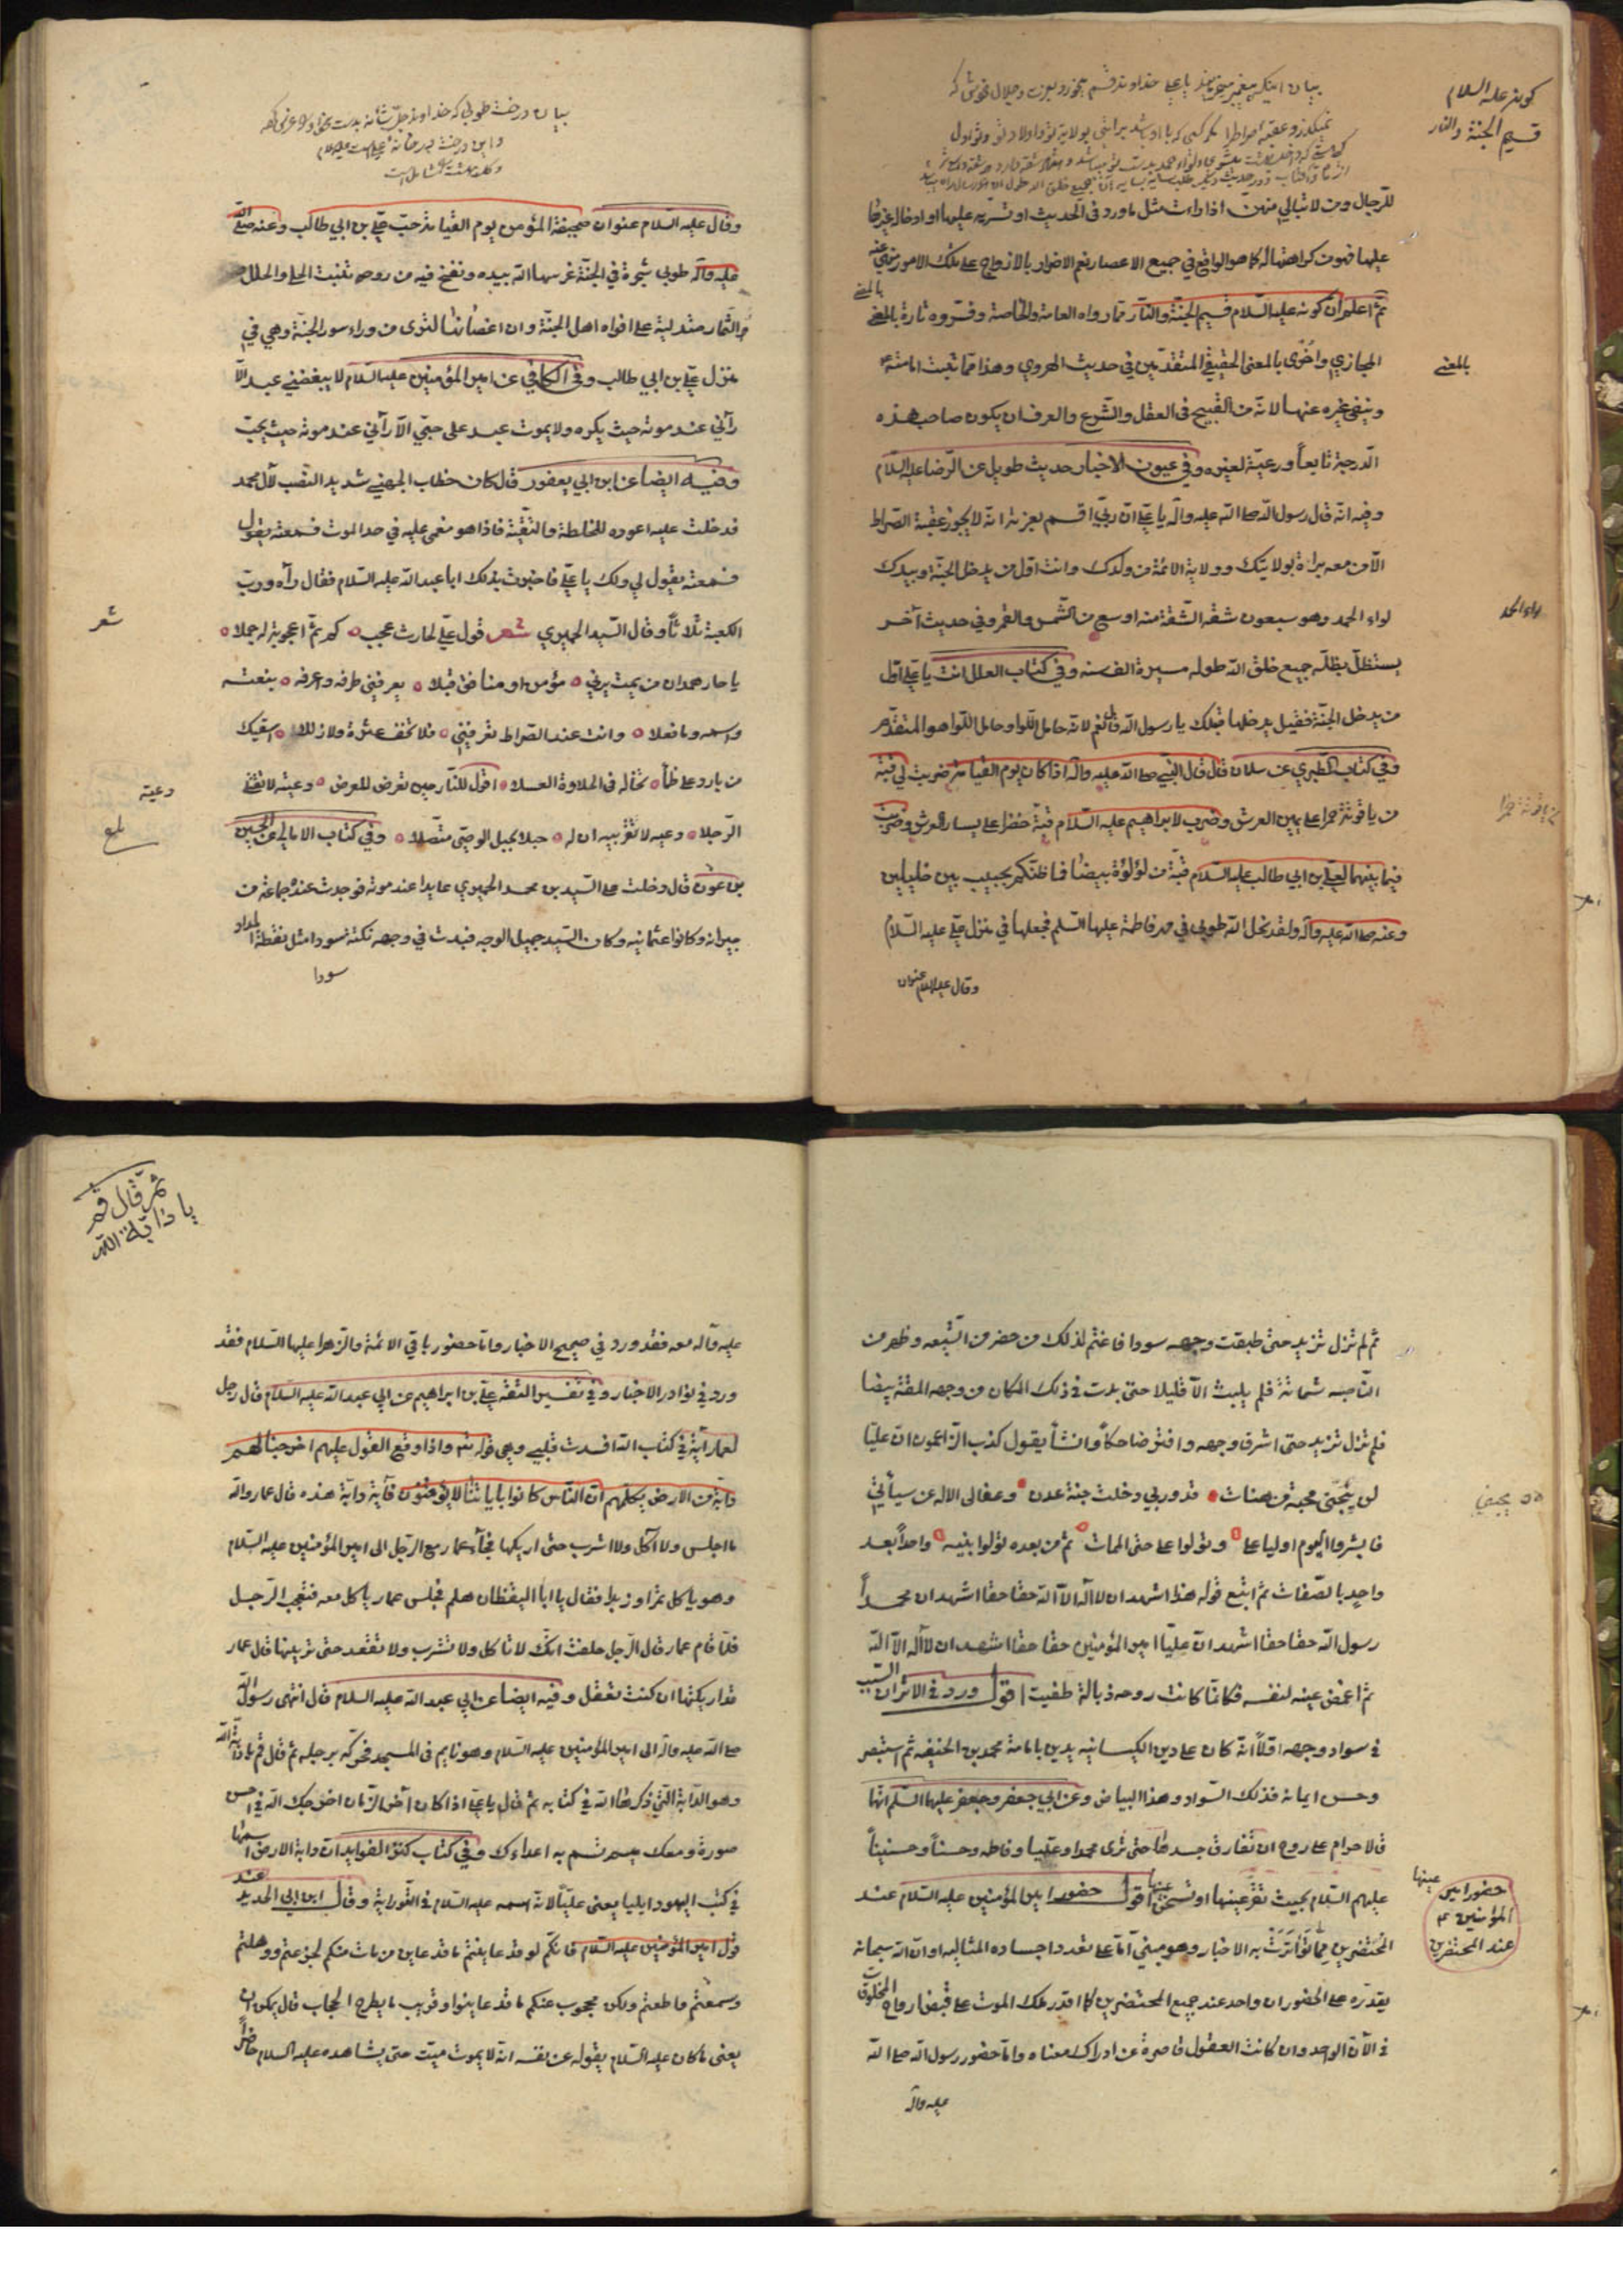 كونه عليه السلام
قسيم الجنة والنار
للرجال ومن لا تبالي منهن اذا رأت مثل ما ورد في الحديث او تسريه عليها او ادخال غيرها
عليها فهون كراهتها له كما هو الواقع في جميع الاعصار نعم الاضرار بالازواج على تلك الامور منهي عنه
ثم اعلم ان كونه عليه السلام قسيم الجنة والنار مما رواه العامة والخاصة وفسروه تارة بالمعنى
المجازي واخرى بالمعنى الحقيقي المتقدمين في حديث الهروي وهذا مما تثبت امامته
بالمعنى
وينفي غيره عنها لانه من القبيح في العقل والشرع والعرف ان يكون صاحب هذه
الدرجة تابعاً ورعية لغيره وفي عيون الاخبار حديث طويل عن الرضا عليه السلام
وفيه انه قال رسول الله صلى الله عليه وآله يا علي ان ربي اقسم بعزته انه لا يجوز عقبة الصراط
الا من معه براءة بولايتك وولاية الائمة من ولدك وانت اول من يدخل الجنة وبيدك
لواء الحمد وهو سبعون شقة الشقة منه اوسع من الشمس والقمر وفي حديث آخر
لواء الحمد
يستظل بظله جميع خلق الله طوله مسيرة الف سنه وفي كتاب العلل انت يا علي اول
من يدخل الجنة فقيل يدخلها قبلك يا رسول الله قال نعم لانه حامل اللوا وحامل اللوا هو المتقدم
وفي كتاب الطبري عن سلمان قال قال النبي صلى الله عليه وآله اذا كان يوم القيامة ضربت لي قبة
من ياقوتة حمرا على يمين العرش وضرب لابراهيم عليه السلام قبة خضرا على يسار العرش وضربت
فيما بينهما لعلي بن ابي طالب عليه السلام قبة من لؤلؤة بيضا فما ظنكم بحبيب بين خليلين
وعنه صلى الله عليه وآله ولقد نحل الله طوبى في مهر فاطمة عليها السلم فجعلها في منزل علي عليه السلام
وقال عليه السلام عنوان
وقال عليه السلام عنوان صحيفة المؤمن يوم القيامة حب علي بن ابي طالب وعنه صلى الله
عليه وآله طوبى شجرة في الجنة غرسها الله بيده ونفخ فيه من روحه تنبت الحلي والحلل
والثمار متدلية على افواه اهل الجنة وان اغصانها لترى من وراء سور الجنة وهي في
منزل علي بن ابي طالب وفي الكافي عن امير المؤمنين عليه السلام لا يبغضني عبد الا
رآني عند موته حيث يكره ولا يموت عبد على حبي الا رآني عند موته حيث يحب
وفيه ايضا عن ابن ابي يعفور قال كان خطاب الجهني شديد النصب لآل محمد
فدخلت عليه اعوده للخلطة والتقية فاذا هو مغمى عليه في حد الموت فسمعته يقول
فسمعته يقول لي ولك يا علي فاخبرت بذلك ابا عبد الله عليه السلام فقال رآه ورب
الكعبة ثلاثاً وقال السيد الحميري شعر قول علي لحارث عجب كم ثم اعجوبة له حملا
شعر
يا حار همدان من يمت يرني مؤمن او منافق قبلا يعرفني طرفه واعرفه بنعته
واسمه وما فعلا وانت عند الصراط تعرفني فلا تخف عثرة ولا زللا اسقيك
من بارد على ظمأ تخاله في الحلاوة العسلا اقول للنار حين تعرض للعرض دعيه لا تقتلي
دعيه
الرجلا دعيه لا تقربيه ان له حبلا بحبل الوصي متصلا وفي كتاب الامالي عن الحسين
بن عون قال دخلت على السيد بن محمد الحميري عايدا عند موته فوجدت عنده جماعة من
جيرانه وكانوا عثمانيه وكان السيد جميل الوجه فبدت في وجهه نكتة سودا مثل نقطة المداد
سودا
ثم لم تزل تزيد حتى طبقت وجهه سودا فاغتم لذلك من حضر من الشيعه وظهر من
الناصبه شماتة فلم يلبث الا قليلا حتى بدت في ذلك المكان من وجهه المقة بيضا
فلم تزل تزيد حتى اشرق وجهه وافتر ضاحكاً وانشأ يقول كذب الزاعمون ان علياً
لن ينجي محبه من هنات قد وربي دخلت جنة عدن وعفا لي الاله عن سيأتي
فابشروا اليوم اوليا علي وتولوا علي حتى الممات ثم من بعده تولوا بنيه واحداً بعد
واحد بالصفات ثم اتبع قوله هذا اشهد ان لا اله الا الله حقا حقا اشهد ان محمداً
رسول الله حقا حقا اشهد ان علياً امير المؤمنين حقا حقا اشهد ان لا اله الا الله
ثم اغمض عينه لنفسه فكانما كانت روحه ذبالة طفيت اقول ورد في الاثر ان السبب
في سواد وجهه اولاً انه كان على دين الكيسانيه يدين بامامة محمد بن الحنيفه ثم استبصر
وحسن ايمانه فذلك السواد وهذا البياض وعن ابي جعفر وجعفر عليهما السلم انهما
قالا حرام على روح ان تفارق جسدها حتى ترى محمدا وعلياً وفاطمه وحسناً وحسيناً
عليهم السلام بحيث تقر عينها او تسخن عينها اقول حضور امير المؤمنين عليه السلام عند
حضور امير
المؤمنين ع
عند المحتضرين
المحتضرين مما تواترت به الاخبار وهو مبني اما على تعدد اجساده المثاليه او ان الله سبحانه
يقدره على الحضور ان واحد عند جميع المحتضرين كما اقدر ملك الموت على قبض ارواح المخلوقات
في الآن الواحد وان كانت العقول قاصرة عن ادراك معناه واما حضور رسول الله صلى الله
عليه وآله
ثم قال قم
يا دابة الله
عليه وآله معه فقد ورد في صحيح الاخبار واما حضور باقي الائمة والزهرا عليها السلام فقد
ورد في نوادر الاخبار وفي تفسير الثقه علي بن ابراهيم عن ابي عبد الله عليه السلام قال رجل
لعمار آية في كتاب الله افسدت قلبي وهي قوله تعالى واذا وقع القول عليهم اخرجنا لهم
دابة من الارض تكلمهم ان الناس كانوا باياتنا لا يوقنون فاية دابة هذه قال عمار والله
ما اجلس ولا آكل ولا اشرب حتى اريكها فجاء عمار مع الرجل الى امير المؤمنين عليه السلام
وهو ياكل تمرا وزبدا فقال يا ابا اليقظان هلم فجلس عمار ياكل معه فتعجب الرجل
فلما قام عمار قال الرجل حلفت انك لا تاكل ولا تشرب ولا تقعد حتى ترينيها قال عمار
قد اريتكها ان كنت تعقل وفيه ايضا عن ابي عبد الله عليه السلام قال انتهى رسول الله
صلى الله عليه وآله الى امير المؤمنين عليه السلام وهو نايم في المسجد فحركه برجله ثم قال قم يا دابة الله
وهو الدابة التي ذكرها الله في كتابه ثم قال يا علي اذا كان آخر الزمان اخرجك الله في احسن
صورة ومعك ميسم تسم به اعداءك وفي كتاب كنز الفوايد ان دابة الارض اسمها
في كتب اليهود ايليا يعني علياً لانه اسمه عليه السلام في التوراية وقال ابن ابي الحديد عند
قول امير المؤمنين عليه السلام فانكم لو قد عاينتم ما قد عاين من مات منكم لجزعتم ووهلتم
وسمعتم واطعتم ولكن محجوب عنكم ما قد عاينوا وقريب ما يطرح الحجاب قال يمكن ان
يعنى ما كان عليه السلام يقوله عن نفسه انه لا يموت ميت حتى يشاهده عليه السلام حاضراً